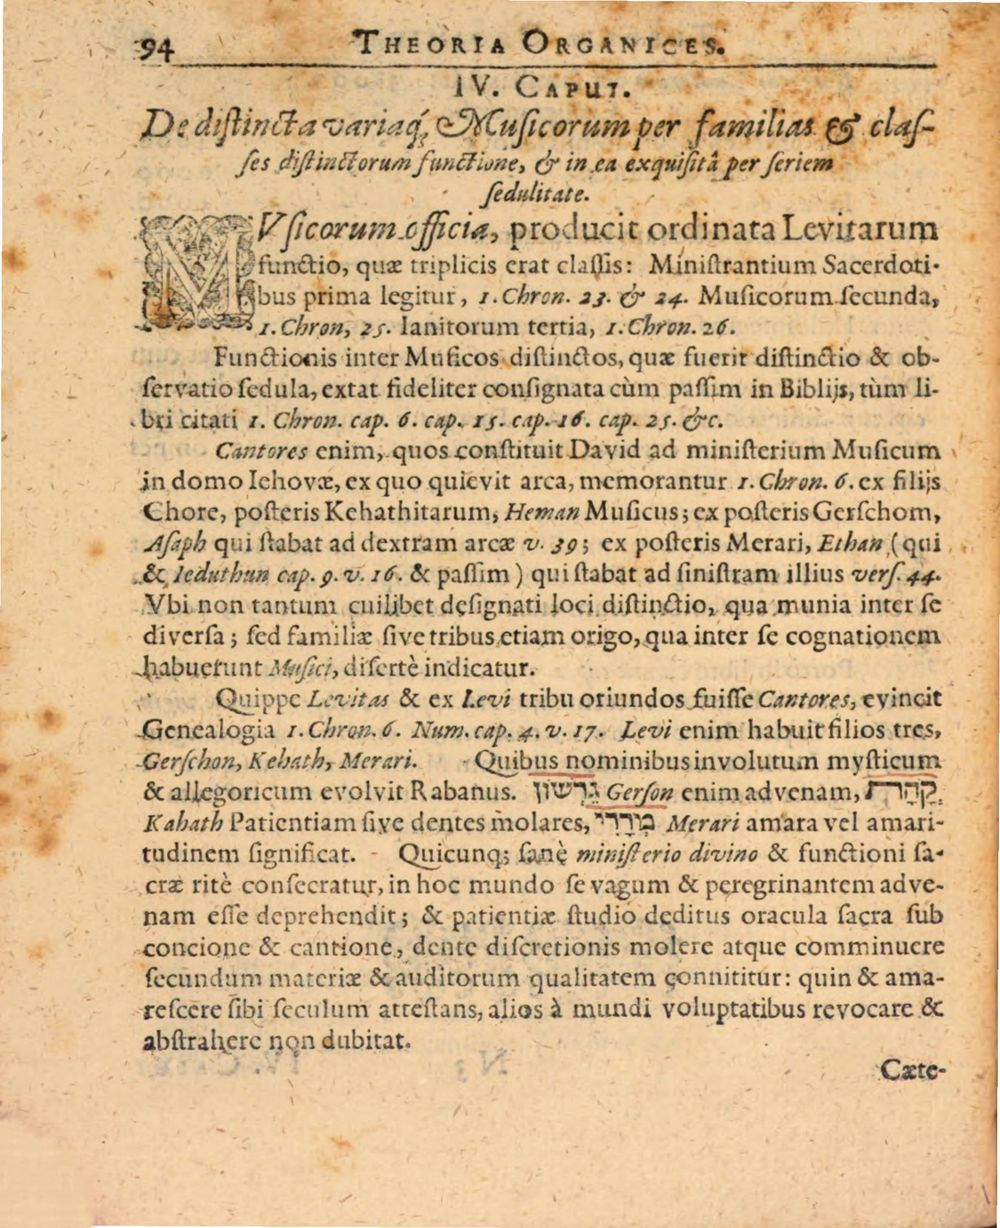 94 THEORIA ORGANICES.
IV. CAPUT.
De distincta variaq́; Musicorum per familias & clas-
ses distinctorum functione, & in ea exquisitâ per seriem
sedulitate.
MVsicorum officia, producit ordinata Levitarum
functio, quæ triplicis erat classis: Ministrantium Sacerdoti-
bus prima legitur, 1. Chron. 23. & 24. Musicorum secunda,
1. Chron, 25. Ianitorum tertia, 1. Chron. 26.
Functionis inter Musicos distinctos, quæ fuerit distinctio & ob-
servatio sedula, extat fideliter consignata cùm passim in Biblijs, tùm li-
bri citati 1. Chron. cap. 6. cap. 15. cap. 16. cap. 25. &c.
Cantores enim, quos constituit David ad ministerium Musicum
in domo Iehovæ, ex quo quievit arca, memorantur 1. Chron. 6. ex filijs
Chore, posteris Kehathitarum, Heman Musicus; ex posteris Gerschom,
Asaph qui stabat ad dextram arcæ v. 39; ex posteris Merari, Ethan (qui
& Ieduthun cap. 9. v. 16. & passim) qui stabat ad sinistram illius vers. 44.
Vbi non tantum cuilibet designati loci distinctio, qua munia inter se
diversa; sed familiæ sive tribus etiam origo, qua inter se cognationem
habuerunt Musici, disertè indicatur.
Quippe Levitas & ex Levi tribu oriundos fuisse Cantores, evincit
Genealogia 1. Chron. 6. Num. cap. 4. v. 17. Levi enim habuit filios tres,
Gerschon, Kehath, Merari. Quibus nominibus involutum mysticum
& allegoricum evolvit Rabanus. גֵרְשׁוֹן Gerson enim advenam, קָהָרת
Kahath Patientiam sive dentes molares, מְרָרִי Merari amara vel amari-
tudinem significat. Quicunq; sanè ministerio divino & functioni sa-
cræ ritè consecratur, in hoc mundo se vagum & peregrinantem adve-
nam esse deprehendit; & patientiæ studio deditus oracula sacra sub
concione & cantione, dente discretionis molere atque comminuere
secundum materiæ & auditorum qualitatem connititur: quin & ama-
rescere sibi seculum attestans, alios à mundi voluptatibus revocare &
abstrahere non dubitat.
Cæte-